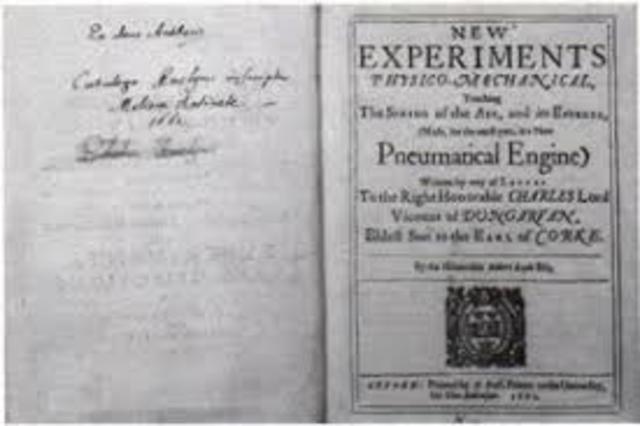 Ex dono Authoris
Catalogo
Melioris
1661
NEW
EXPERIMENTS
PHYSICO-MECHANICAL,
Touching
The SPRING of the AIR, and its EFFECTS,
(Made, for the most part, in a New
Pneumatical Engine)
Written by way of LETTER
To the Right Honorable CHARLES Lord
Vicount of DUNGARVAN,
Eldest Son to the EARL of CORKE.
By the Honorable Robert Boyle Esq;
OXFORD: Printed by H. Hall, Printer to the University,
for Tho: Robinson.